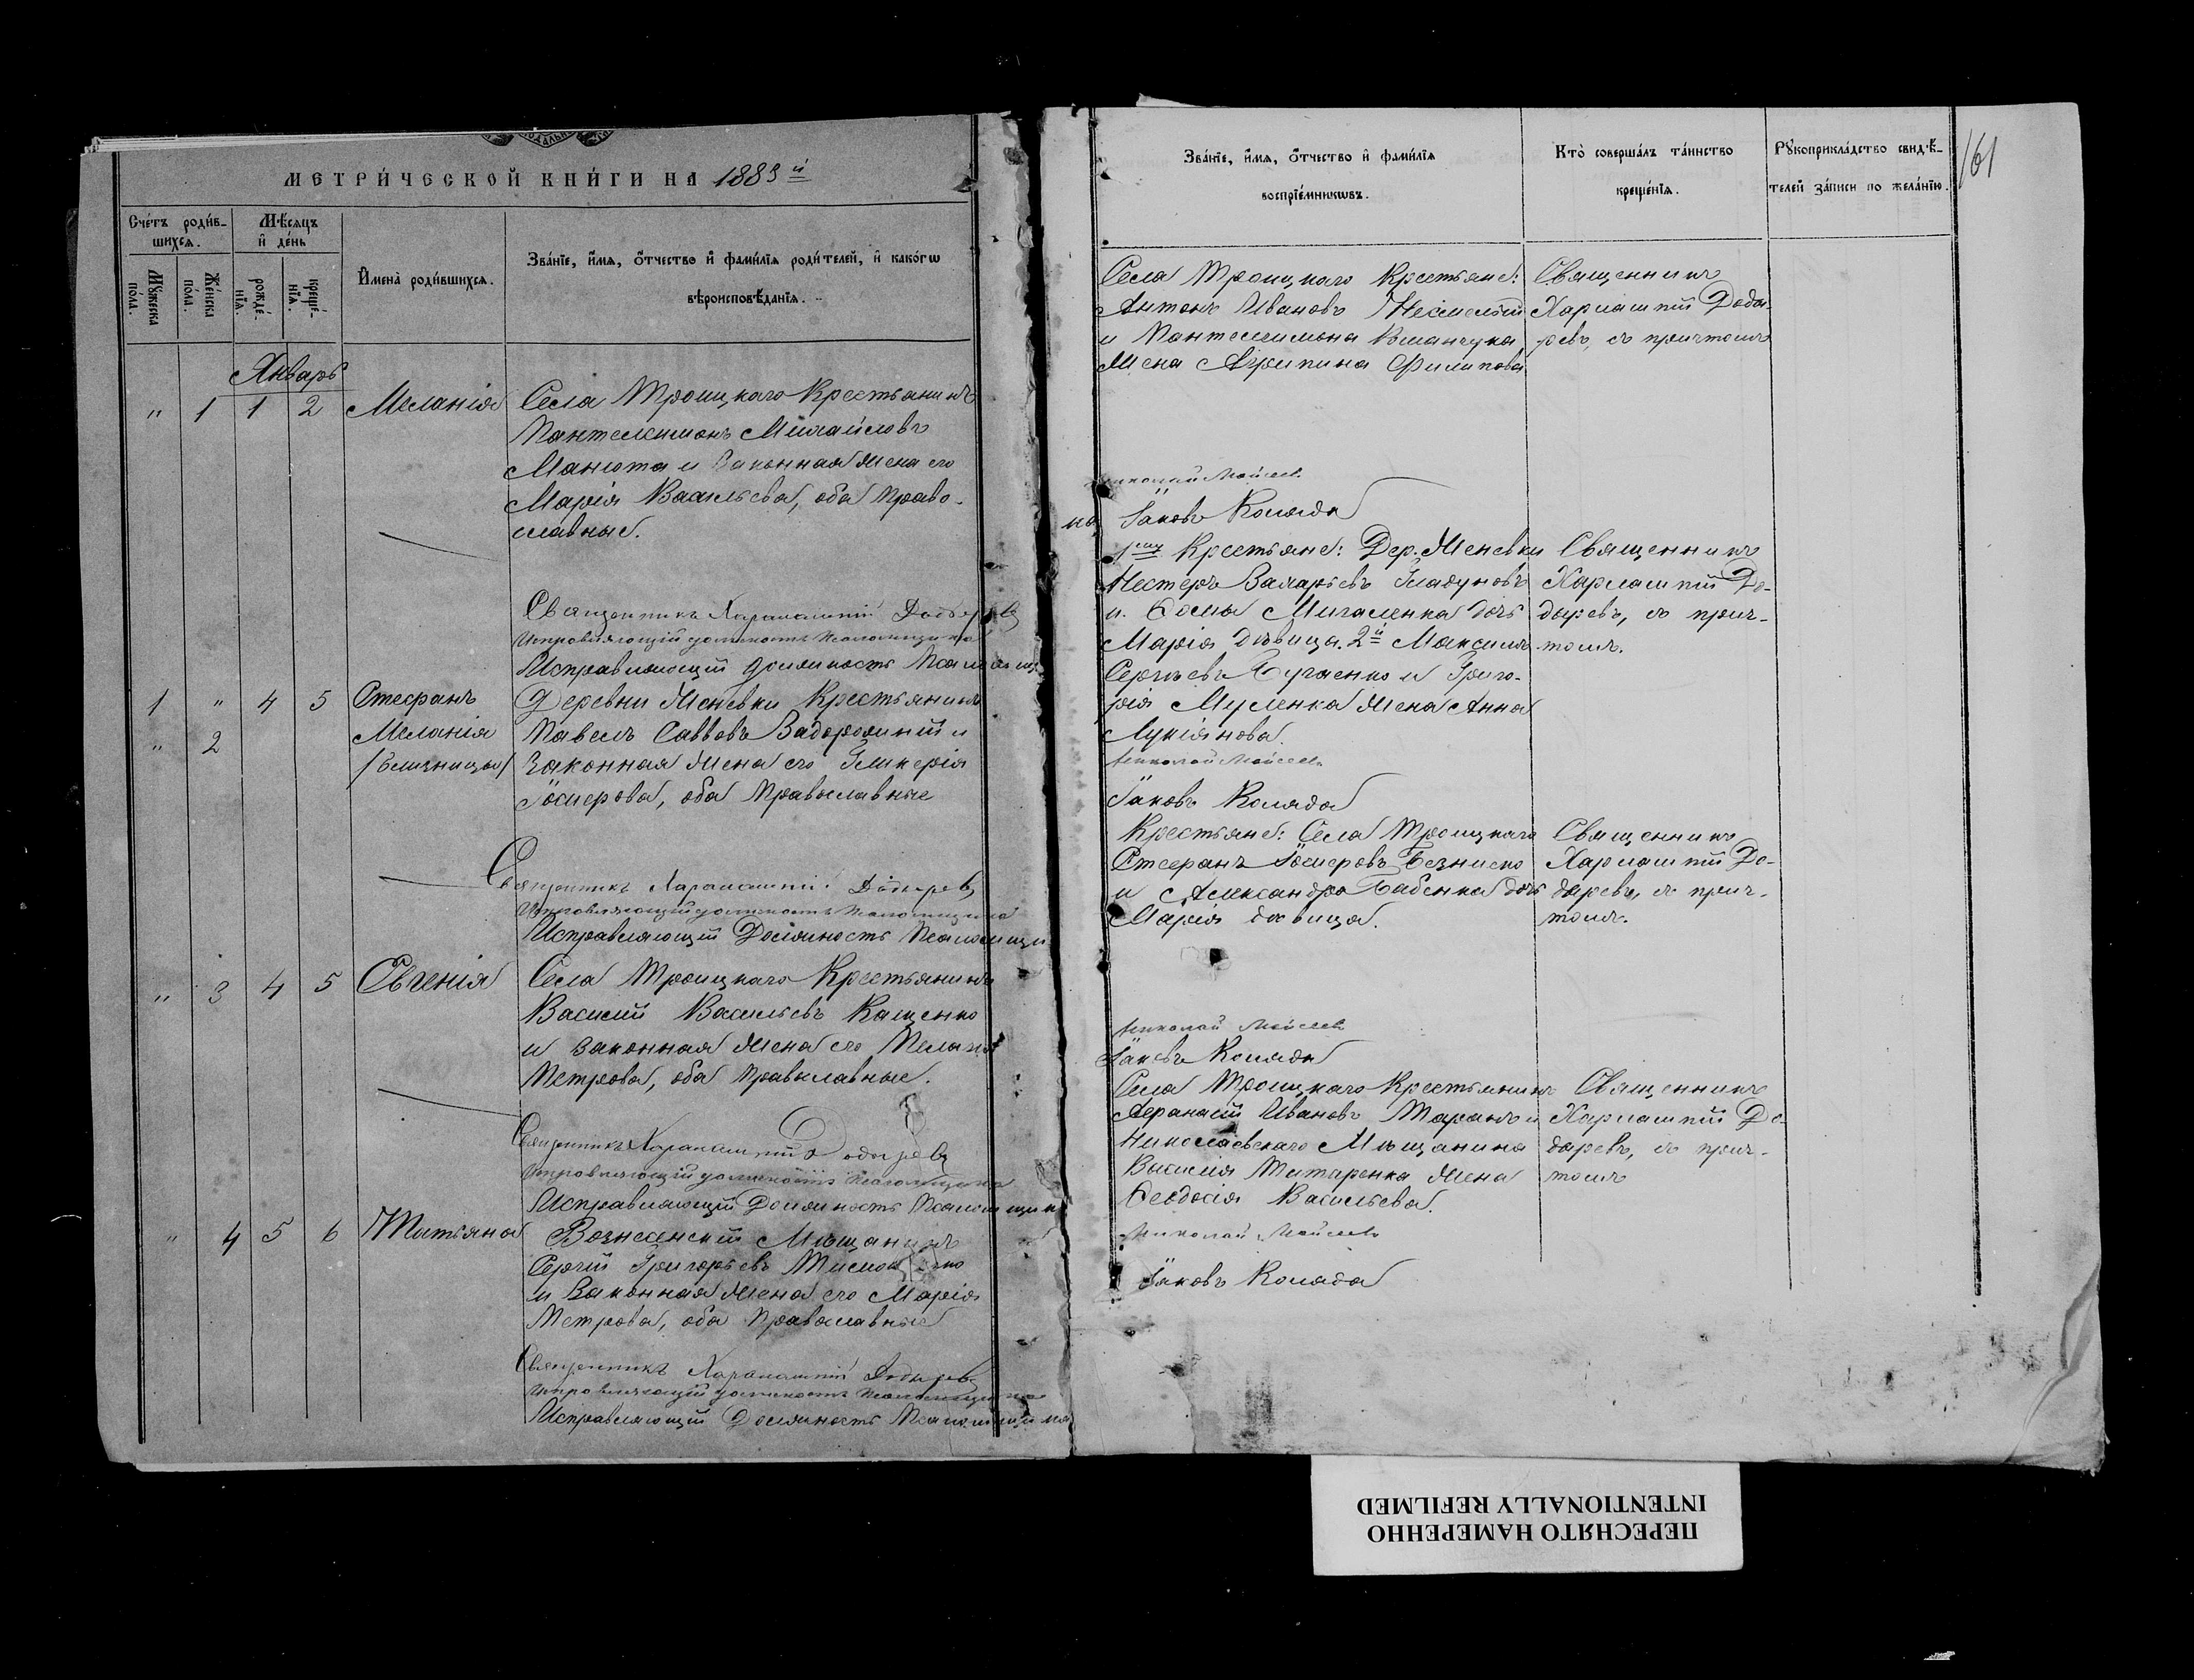 МЕТРИ́ЧЕСКОЙ КНИ́ГИ НА 1883й
Сче́тъ роди́в-
шихсѧ.
Мѣ́сѧцъ
и҆ де́нь
Мꙋ́жеска
по́ла.
Же́нска
по́ла.
рожде́-
нїѧ.
креще́-
нїѧ.
И҆мена̀ роди́вшихсѧ.
Зва́нїе, и҆́мѧ, ѻ҆́тчество и҆ фами́лїѧ роди́телей, и҆ како́гѡ
вѣроисповѣ́данїѧ.
Январь
" 1 1 2 Меланія
Села Троицкаго Крестьянинъ
Пантелеимонъ Михайловъ
Манюта и Законная жена его
Марія Васильева, оба Право-
славные.
Священникъ Харалампій Додыревъ
Исправляющій должность Псаломщика
Исправляющій должность Псаломщи
1 " 4 5 Стефанъ
" 2 Меланія
/близницы/
Деревни Женевки Крестьянинъ
Павелъ Саввовъ Задорожній и
Законная жена его Гликерія
Іосифова, оба Православные
Священникъ Харалампій Додыревъ
Исправляющій должность Псаломщика
Исправляющій Должность Псаломщи
" 3 4 5 Евгенія
Села Троицкаго Крестьянинъ
Василій Васильевъ Кащенко
и законная жена его Пелагія
Петрова, оба Православные.
Священникъ Харалампій Додыревъ
Исправляющій должность Псаломщика
Исправляющій Должность Псаломщик
" 4 5 6 Татьяна
Вознесенскій Мѣщанинъ
Сергій Григорьевъ
и Законная жена его Марія
Петрова, оба Православные
Священникъ Харалампій Додыревъ
Исправляющій должность Псаломщика
Исправляющій Должность Псаломщика
161
Зва́нїе, и҆́мѧ, ѻ҆́тчество и҆ фами́лїѧ
воспрїе́мникѡвъ.
Кто̀ соверша́лъ та́инство
креще́нїѧ.
Рꙋкоприкла́дство свидѣ́-
телей за́писи по жела́нїю.
Села Троицкаго Крестьяне:
Антонъ Ивановъ
и Пантелеимона
Жена Агрипина Филипова
Священникъ
Харлампій Доды-
ревъ, съ причтомъ
Николай Мойсеевъ
ка Іаковъ Коляда
1ый Крестьяне: Дер. Женевки
Несторъ Захарьевъ Гладуновъ
и Фомы Мигаленка дочь
Марія Дѣвица. 2й Максимъ
Сергѣевъ и Григо-
рія Мусенка жена Анна
Лукіянова.
Священникъ
Харлампій До-
дыревъ, съ прич-
томъ.
Николай Мойсеевъ
Іаковъ Коляда
Крестьяне: Села Троицкаго
Стефанъ Іосифовъ Безниско
и Александра Бабенка дочь
Марія дѣвица.
Священникъ
Харлампій До-
дыревъ, съ прич-
томъ.
Николай Мойсеевъ
Іаковъ Коляда
Села Троицкаго Крестьянинъ
Афанасій Ивановъ Таранъ и
Николаевскаго Мѣщанина
Василія Титаренка Жена
Феодосія Васильева.
Священникъ
Харлампій До-
дыревъ, съ прич-
томъ
Николай Мойсеевъ
Іаковъ Коляда
ПЕРЕСНЯТО НАМЕРЕННО
INTENTIONALLY REFILMED